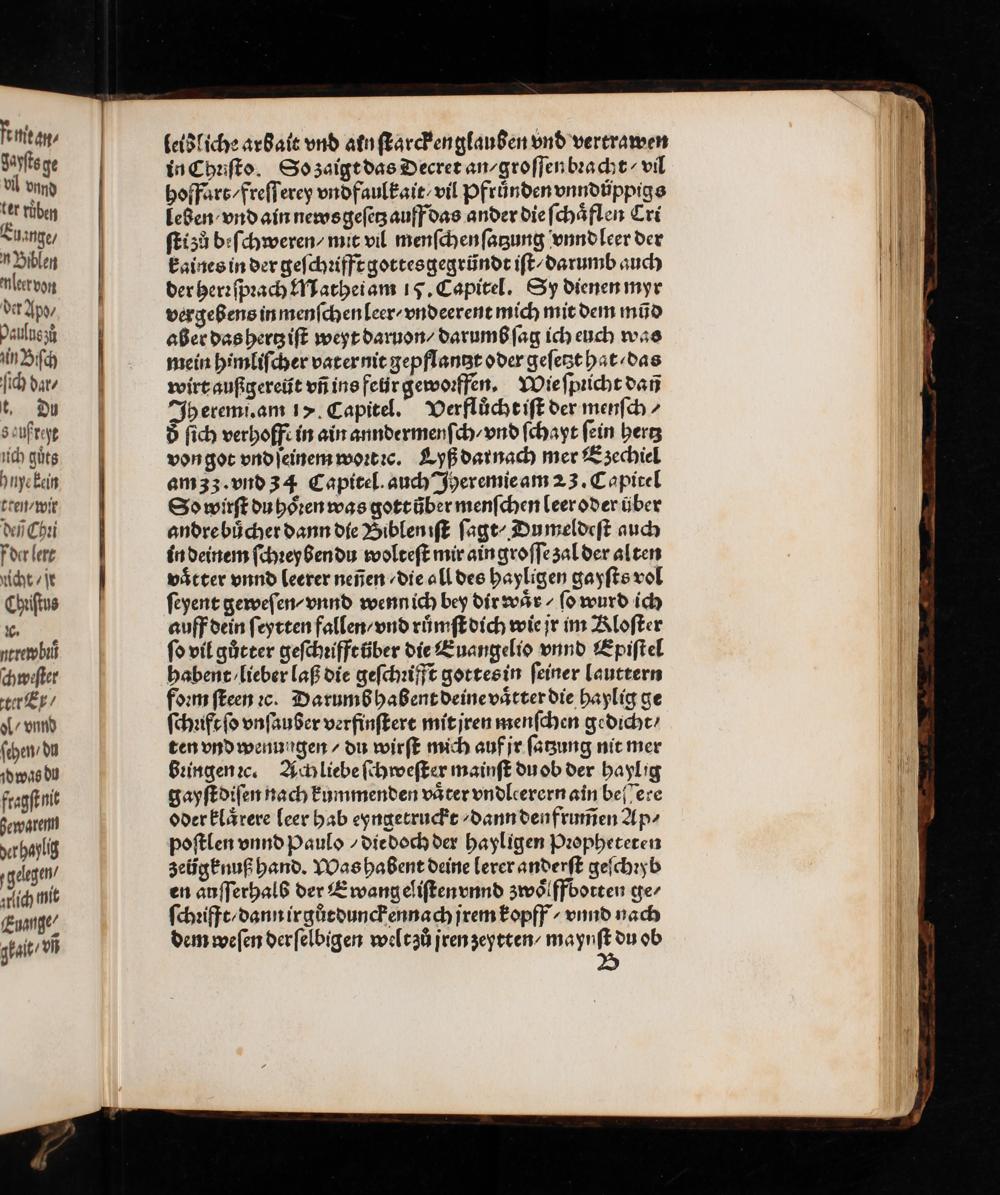 leibliche arbait vnd ain starcken glauben vnd vertrawen
in Christo. So zaigt das Decret an / grossen bracht / vil
hoffart / fresserey vnd faulkait / vil Pfründen vnnd üppigs
leben / vnd ain news gesetz auff das ander die schåflen Cri
sti zů beschweren / mit vil menschen satzung vnnd leer der
kaines in der geschrifft gottes gegründt ist / darumb auch
der herr sprach Mathei am 15. Capitel. Sy dienen myr
vergebens in menschen leer / vnd eerent mich mit dem mūd
aber das hertz ist weyt daruon / darumb sag ich euch was
mein himlischer vater nit gepflantzt oder gesetzt hat / das
wirt außgereüt vn̄ ins feür geworffen. Wie spricht dan̄
Jheremi. am 17. Capitel. Verflůcht ist der mensch /
d̄ sich verhofft in ain annder mensch / vnd schayt sein hertz
von got vnd seinem wort ꝛc. Lyß darnach mer Ezechiel
am 33. vnd 34 Capitel. auch Jheremie am 23. Capitel
So wirst du ho̊ren was gott über menschen leer oder über
andre bůcher dann die Biblen ist sagt / Du meldest auch
in deinem schreyben du woltest mir ain grosse zal der alten
våtter vnnd leerer nen̄en / die all des hayligen gaysts vol
seyent gewesen / vnnd wenn ich bey dir wår / so wurd ich
auff dein seytten fallen / vnd růmst dich wie jr im Kloster
so vil gůtter geschrifft über die Euangelio vnnd Epistel
habent / lieber laß die geschrifft gottes in seiner lauttern
form steen ꝛc. Darumb habent deine våtter die haylig ge
schrift so vnsauber verfinstert mit jren menschen gedicht /
ten vnd wenungen / du wirst mich auf jr satzung nit mer
bringen ꝛc. Ach liebe schwester mainst du ob der haylig
gayst disen nach kummenden våter vnd leerern ain bessere
oder klårere leer hab eyngetruckt / dann den frum̄en Ap /
postlen vnnd Paulo / die doch der hayligen Propheteten
zeügknuß hand. Was habent deine lerer anderst geschryb
en ausserhalb der Ewangelisten vnnd zwo̊lffbotten ge /
schrifft / dann ir gůtduncken nach jrem kopff / vnnd nach
dem wesen der selbigen welt zů jren zeytten / maynst du ob
B